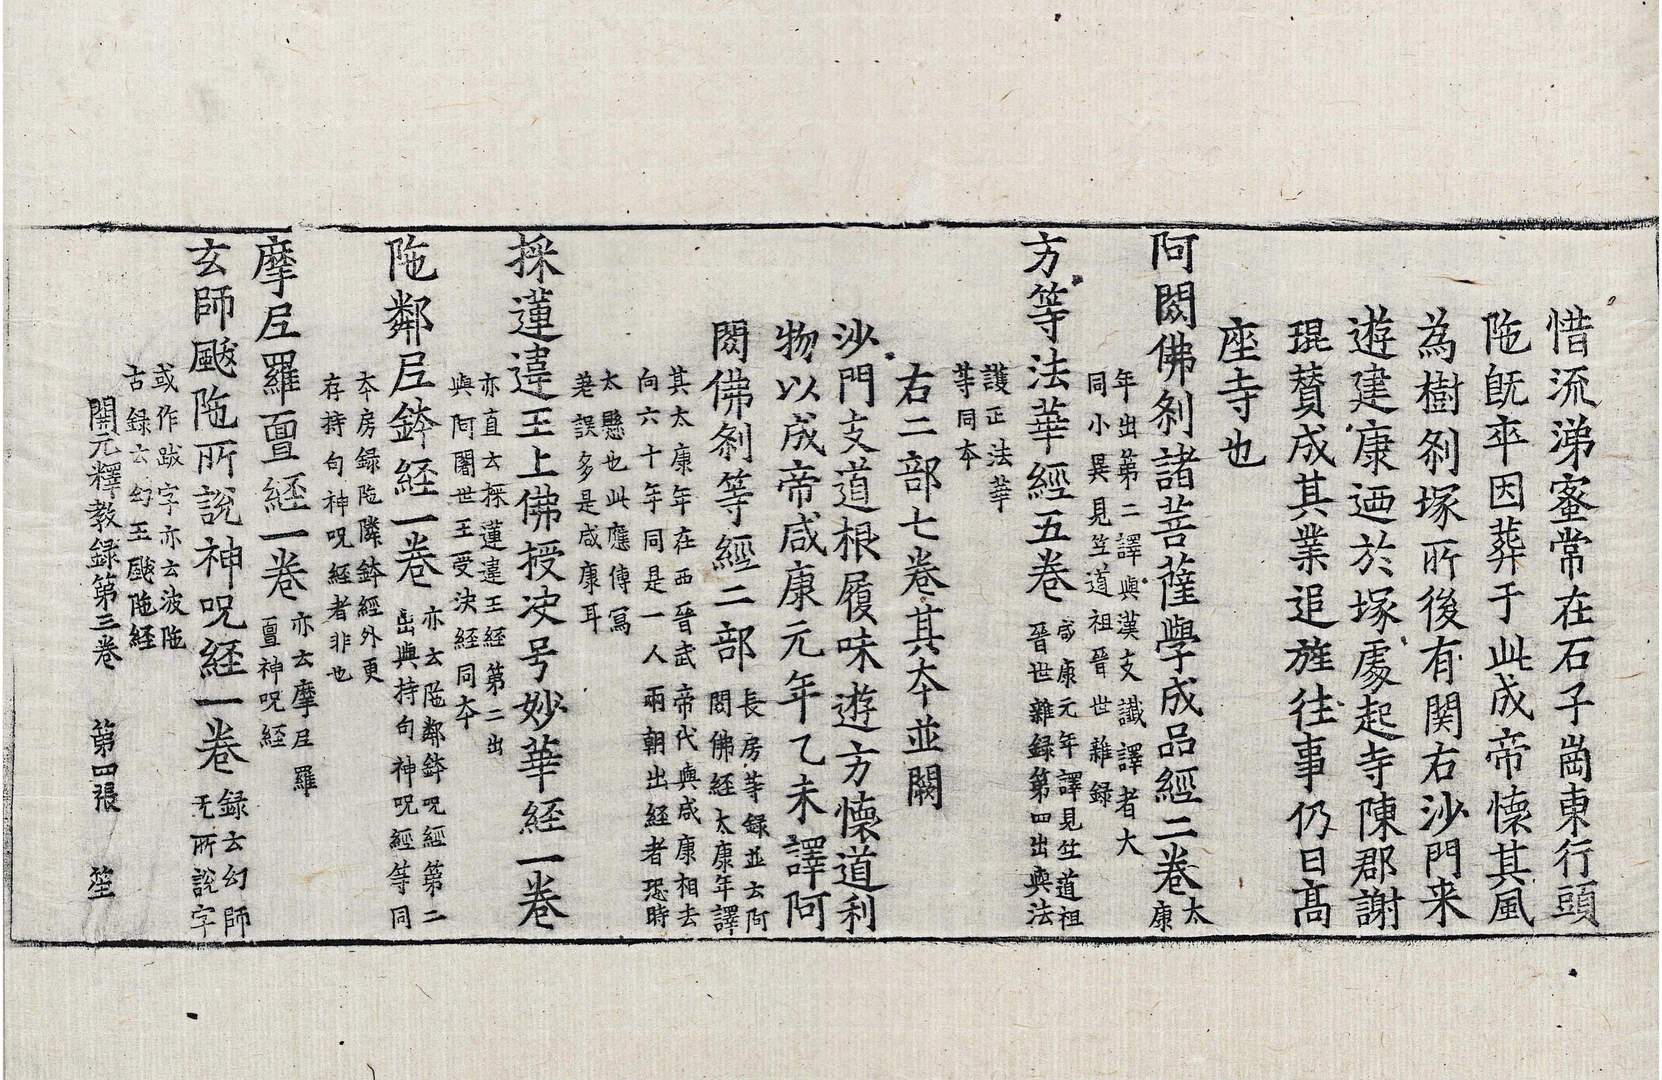 惜流涕蜜常在石子崗東行頭
陁旣卒因葬于此成帝懷其風
為樹刹塚所後有関右沙門来
遊建康迺於塚處起寺陳郡謝
琨賛成其業追旌往事仍曰髙
座寺也
阿閦佛刹諸菩薩學成品經二卷太
康
年出第二譯與漢支讖譯者大
同小異見竺道祖晉世雜録
方等法華經五卷咸康元年譯見竺道祖
晉世雜録第四出與法
護正法華
等同本
右二部七卷其本並闕
沙門支道根履味遊方懷道利
物以成帝咸康元年乙未譯阿
閦佛刹等經二部長房等録並云阿
閦佛經太康年譯
其太康年在西晉武帝代與咸康相去
向六十年同是一人兩朝出経者恐時
太懸也此應傳寫
差誤多是咸康耳
採蓮違王上佛授决号妙華経一卷
亦直云採蓮違王経第二出
與阿闍世王受決経同本
陁鄰尼鉢経一卷亦云陁鄰鉢呪経第二
出與持句神呪經等同
本房録陁隣鉢経外更
存持句神呪経者非也
摩尼羅亶経一卷亦云摩尼羅
亶神呪経
玄師颰陁所說神呪経一卷録云幻師
无所說字
或作跋字亦云波陁
古録云幻王颰陁経
開元釋教録第三卷　第四張　笙